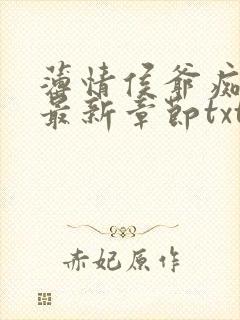 薄情侯爷痴
最新章节txt
赤妃原作